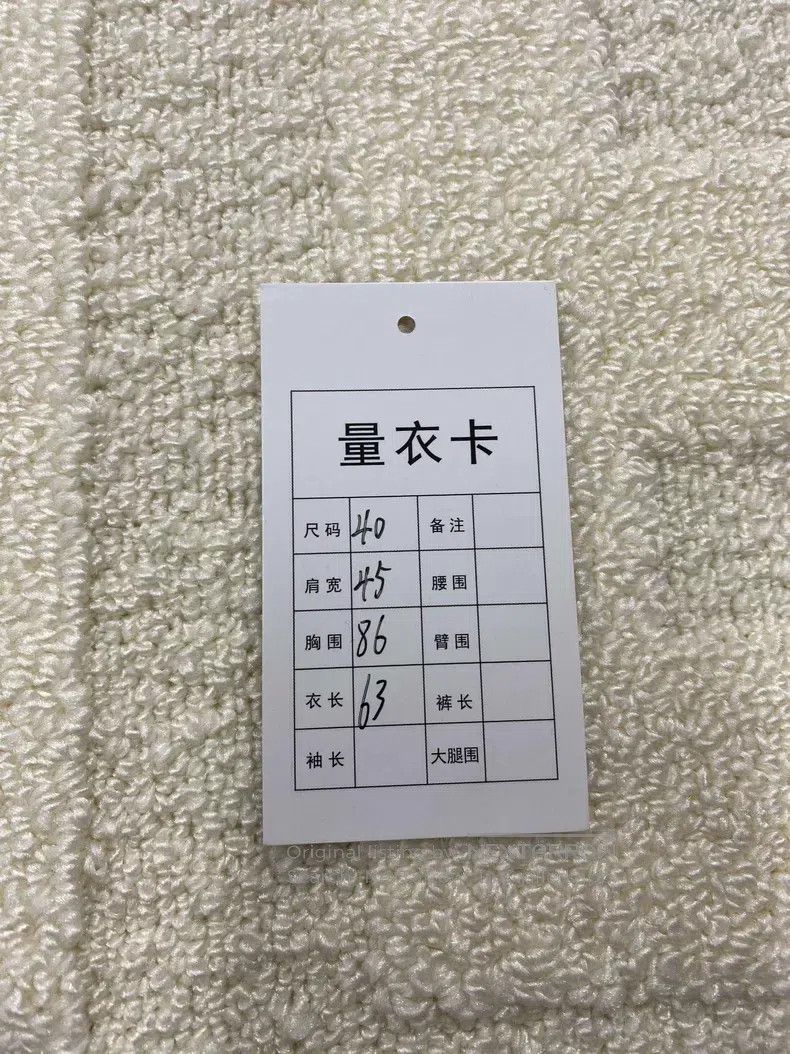 量衣卡
尺码 40 备注
肩宽 45 腰围
胸围 86 臂围
衣长 63 裤长
袖长 大腿围
Original listing by